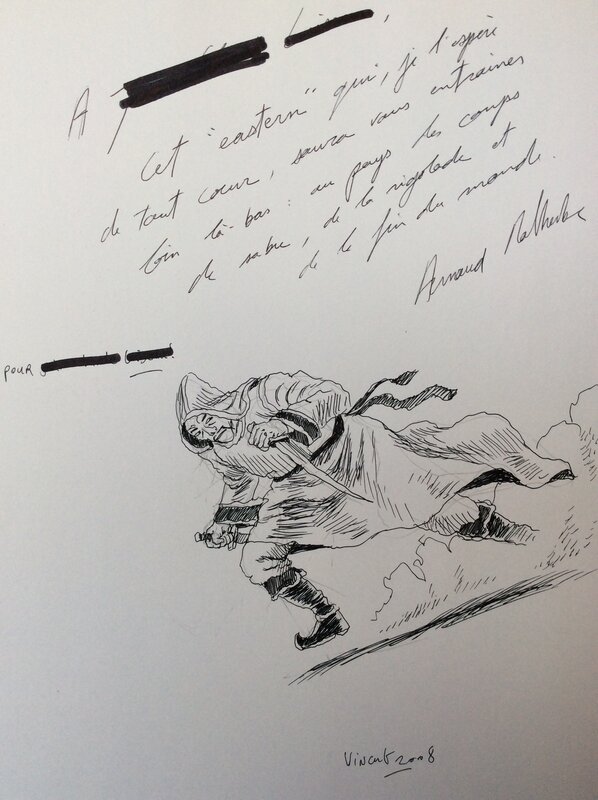 A
Cet "eastern" qui, je l'espère
de tout cœur, saura vous entraîner
loin là-bas : au pays des coups
de sabre, de la rigolade et
de la fin du monde.
Arnaud Malherbe
POUR
Vincent 2008